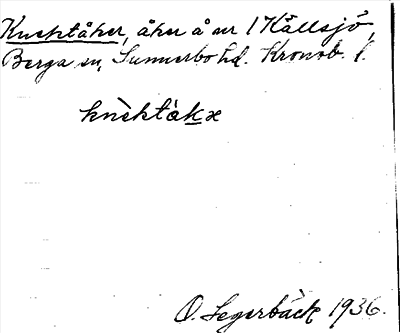 Knektåker, åker å nr 1 Källsjö,
Berga sn, Sunnerbo hd. Kronob. l.
knèktàkæ
O. Segerbäck 1936.